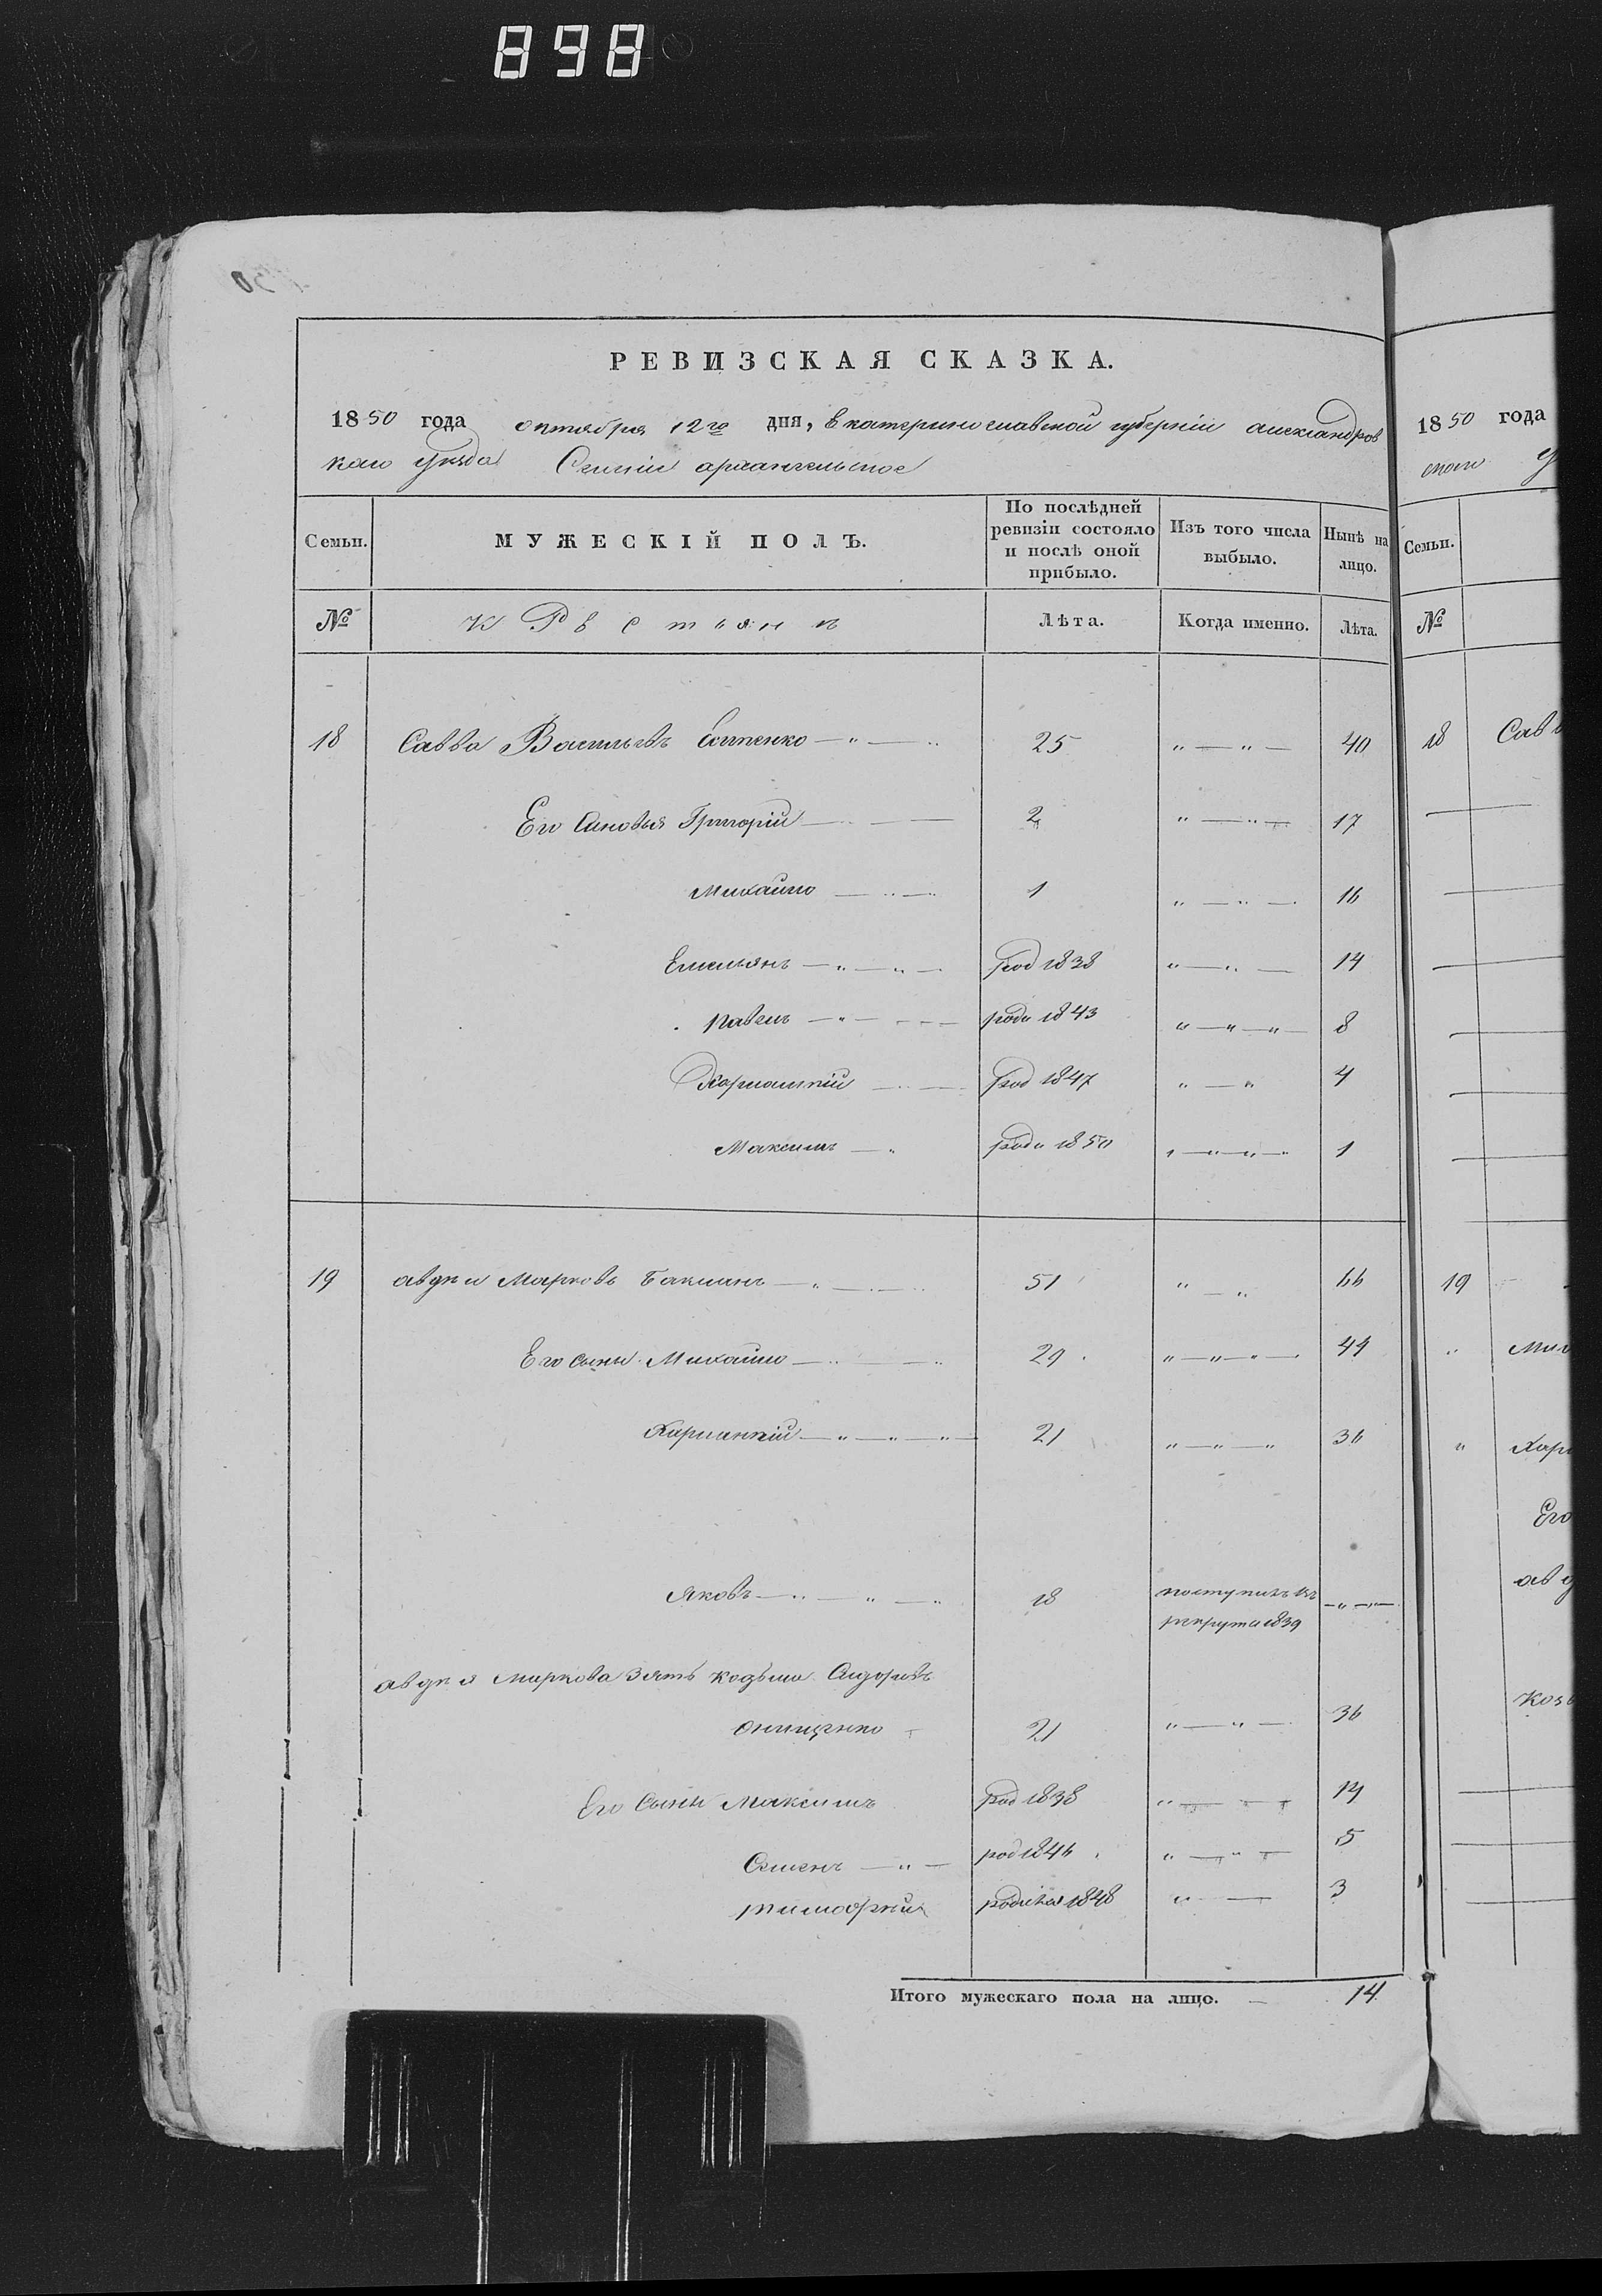 898
РЕВИЗСКАЯ СКАЗКА.
1850 года октября 12го дня, Екатеринославской губерніи александров
каго уезда Селеніи архангельское
Семьи.
МУЖЕСКІЙ ПОЛЪ.
По послѣдней ревизіи состояло и послѣ оной прибыло.
Изъ того числа выбыло.
Нынѣ на лицо.
№
Лѣта.
Когда именно.
Лѣта.
18 Савва Васильевъ 25 40
Его Сыновья Григорій 2 17
Михайло 1 16
Емельянъ род 1838 14
Павелъ роди 1843 8
Харлампій род 1847 4
Максимъ роди 1850 1
19 авдѣи Марковъ Бакланъ 51 66
Его сыны Михайло 29 44
Харлампій 21 36
Яковъ 18 поступилъ въ
рекрута 1839
авдѣя Маркова Зять Козьма Сидоровъ
Онищенко 21 36
Его Сыны Максимъ род 1838 14
Семенъ род 1846 5
тимофѣй 1848 3
Итого мужескаго пола на лицо. 14
1850 года
Семьи.
№
18
19